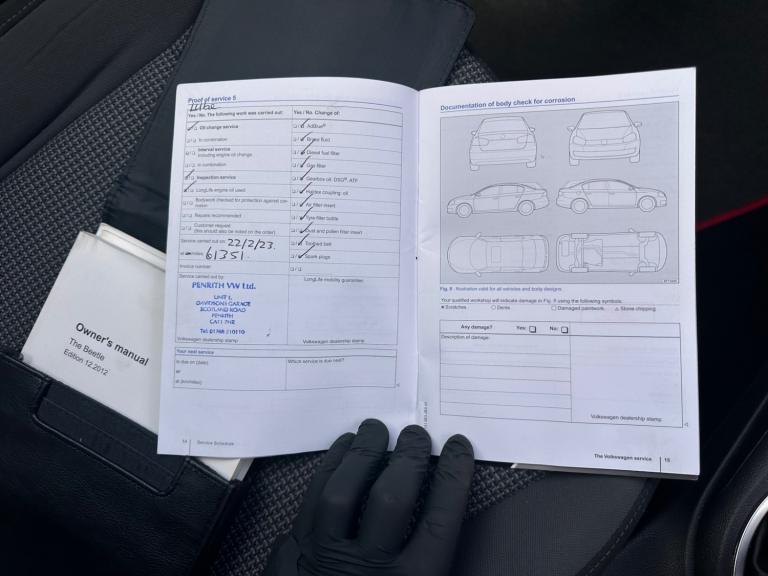 Proof of service 5
Lube
Yes / No. The following work was carried out:
Oil change service
In combination
Interval service
including engine oil change.
In combination
Inspection service
LongLife engine oil used
Bodywork checked for protection against corrosion
Repairs recommended
Customer request
(this should also be noted on the order)
Service carried out on: 22/2/23.
61351.
Invoice number:
Service carried out by:
PENRITH VW Ltd.
UNIT 1,
DAVIDSONS GARAGE
SCOTLAND ROAD
PENRITH
CA11 7NR
Volkswagen dealership stamp
Yes / No. Change of:
AdBlue®
Brake fluid
Diesel fuel filter
Gas filter
Gearbox oil: DSG®, ATF
Haldex coupling: oil
Air filter insert
Tyre filler bottle
Dust and pollen filter insert
Toothed belt
Spark plugs
LongLife mobility guarantee:
Volkswagen dealership stamp
Your next service
is due on (date)
or
at (km/miles)
Which service is due next?
14 Service Schedule
Documentation of body check for corrosion
Fig. 8 Illustration valid for all vehicles and body designs.
Your qualified workshop will indicate damage in Fig. 8 using the following symbols:
Scratches Dents Damaged paintwork Stone chipping
Any damage? Yes: No:
Description of damage:
Volkswagen dealership stamp:
The Volkswagen service 15
Owner's manual
The Beetle
Edition 12.2012